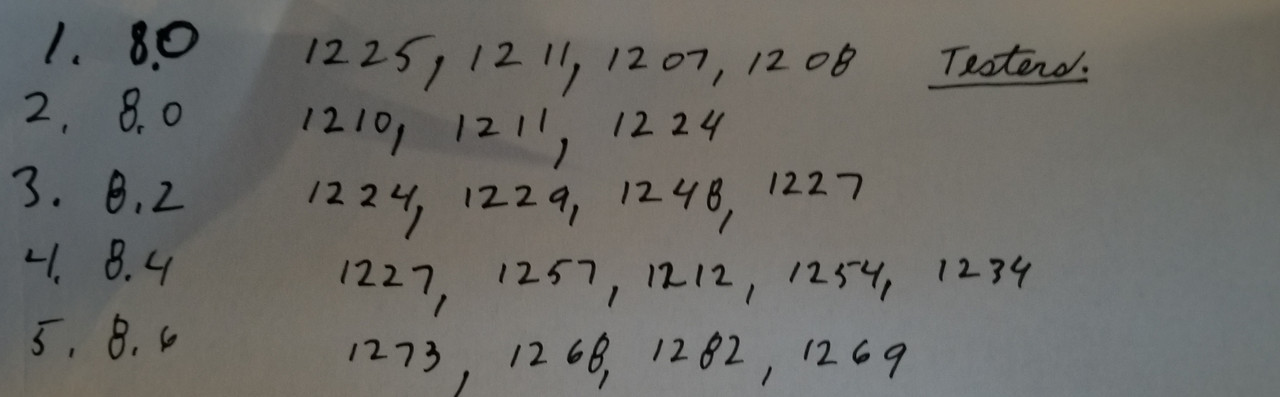 1. 8.0 1225, 1211, 1207, 1208 Testers.
2. 8.0 1210, 1211, 1224
3. 8.2 1224, 1229, 1248, 1227
4. 8.4 1227, 1257, 1212, 1254, 1234
5. 8.6 1273, 1268, 1282, 1269